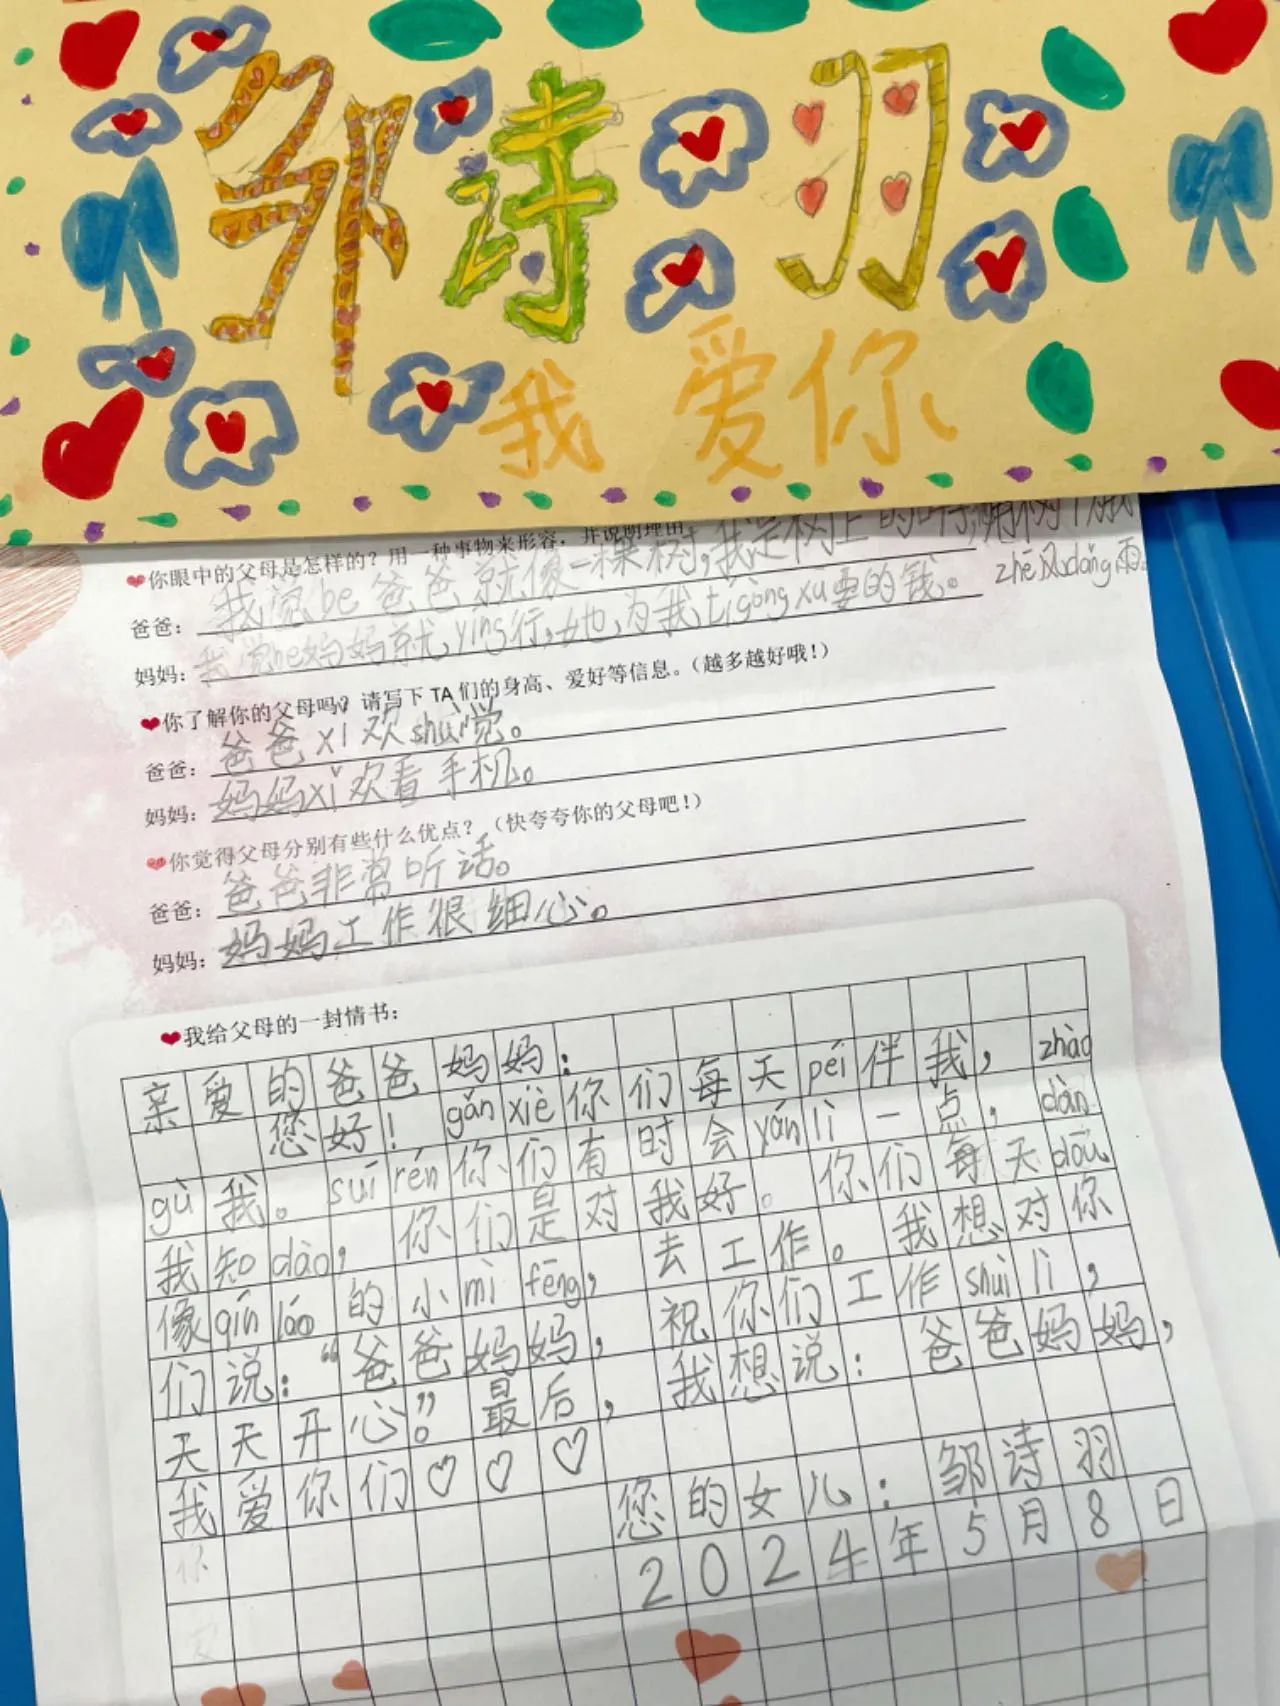 邹诗羽
我爱你
❤你眼中的父母是怎样的？用一种事物来形容，并说明理由。
爸爸：我觉be爸爸就像一棵树，我是树上的叶
zhē风dǎng雨。
妈妈：我觉be妈妈就yíng行，她为我tígòngxū要的钱。
❤你了解你的父母吗？请写下TA们的身高、爱好等信息。（越多越好哦！）
爸爸：爸爸xǐ欢shuì觉。
妈妈：妈妈xǐ欢看手机。
❤你觉得父母分别有些什么优点？（快夸夸你的父母吧！）
爸爸：爸爸非常听话。
妈妈：妈妈工作很细心。
❤我给父母的一封情书：
亲爱的爸爸妈妈：
您好！gǎnxiè你们每天péi伴我，zhào
gù我。suírén你们有时会yánlì一点，dàn
我知dào，你们是对我好。你们每天dōu
像qínláo的小mìfēng，去工作。我想对你
们说：“爸爸妈妈，祝你们工作shùnlì，
天天开心”。最后，我想说：爸爸妈妈，
我爱你们♡♡♡
您的女儿：邹诗羽
2024年5月8日